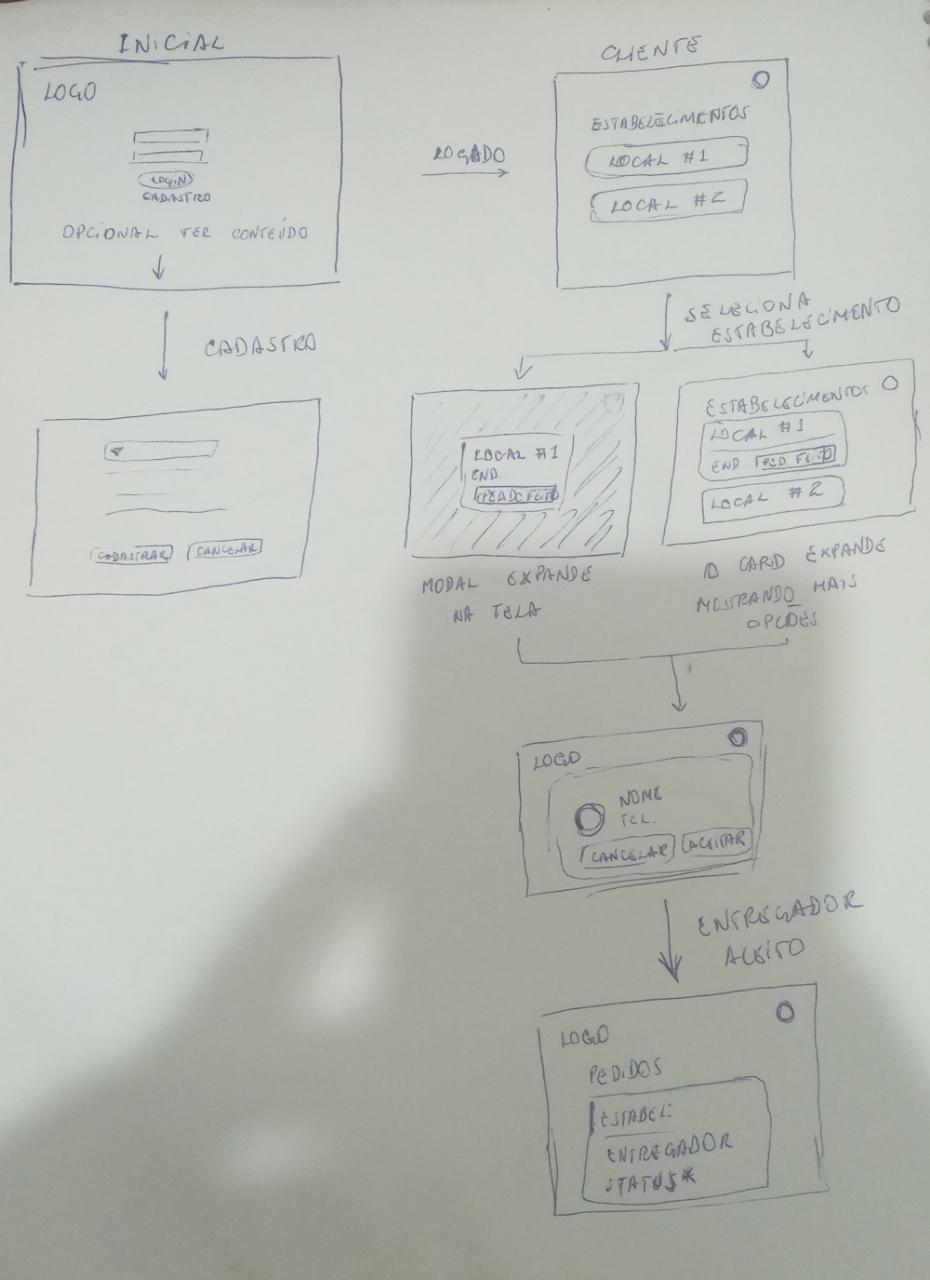 INICIAL
LOGO
LOGIN
CADASTRO
OPCIONAL TER CONTEÚDO
CADASTRO
CADASTRAR CANCELAR
LOGADO
CLIENTE
ESTABELECIMENTOS
LOCAL #1
LOCAL #2
SELECIONA
ESTABELECIMENTO
LOCAL #1
END.
MODAL EXPANDE
NA TELA
ESTABELECIMENTOS
LOCAL #1
END PED FEITO
LOCAL #2
O CARD EXPANDE
MOSTRANDO MAIS
OPÇÕES
LOGO
NOME
TEL.
CANCELAR ACEITAR
ENTREGADOR
ACEITO
LOGO
PEDIDOS
ESTABEL.
ENTREGADOR
STATUS*